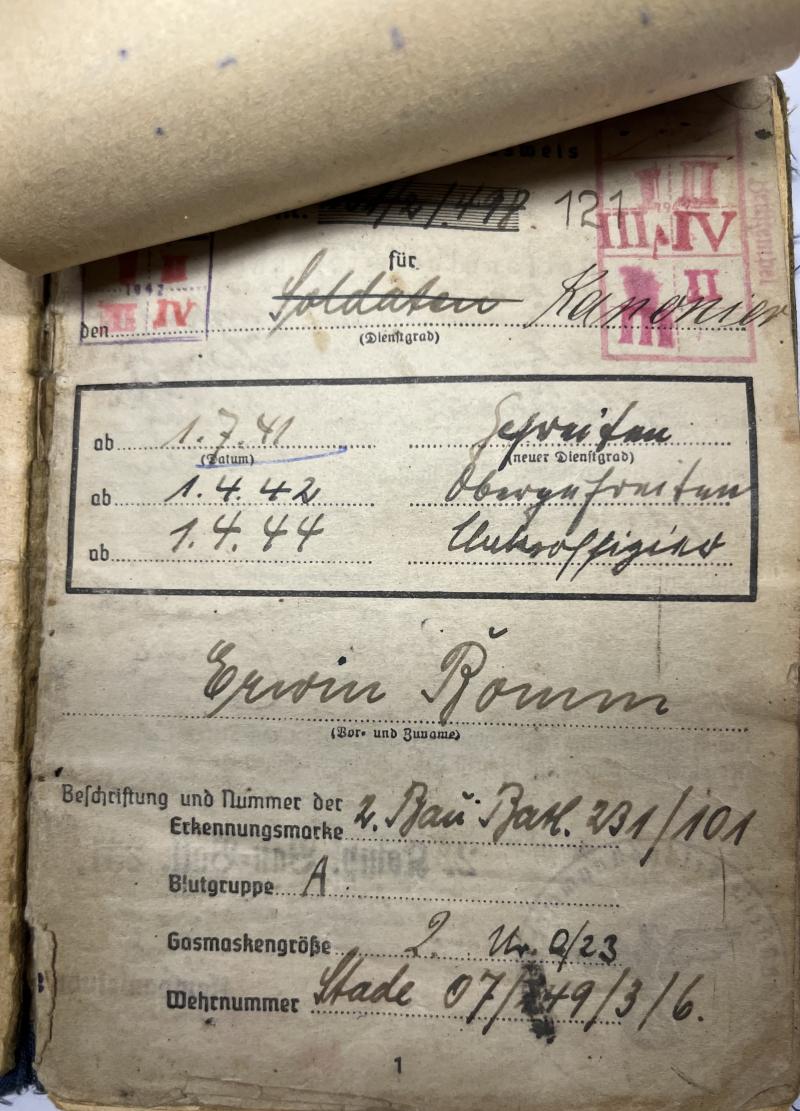 121
für
den Soldaten Kanonier
(Dienstgrad)
1942
II
III IV
II
III
ab 1.7.41 Gefreiten
(Datum) (neuer Dienstgrad)
ab 1.4.42 Obergefreiten
ab 1.4.44 Unteroffizier
Erwin
(Vor- und Zuname)
Beschriftung und Nummer der
Erkennungsmarke 2. Bau-Batl. 231/101
Blutgruppe A
Gasmaskengröße 2. Nr. 0/23
Wehrnummer Stade 07/ 49/3/6.
1